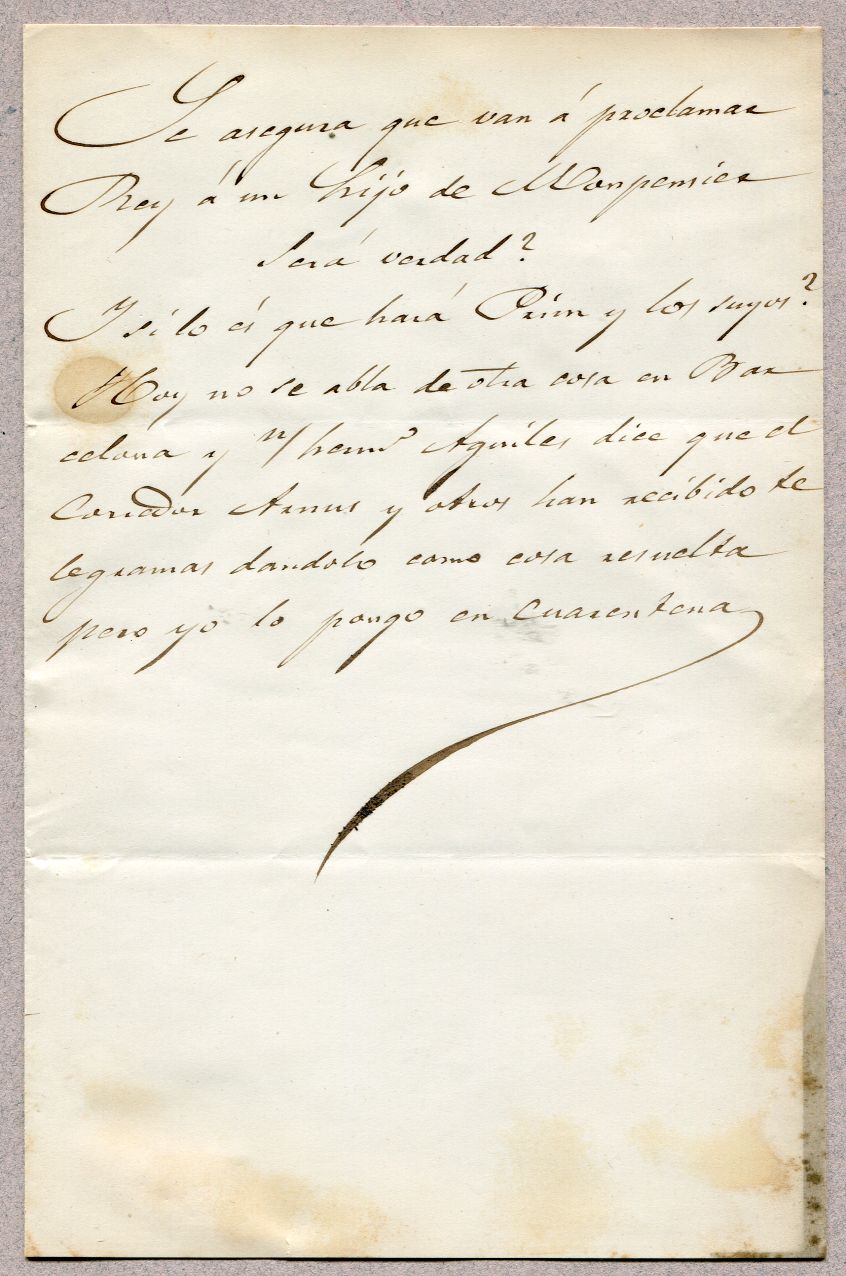 Se asegura que van á proclamar
Rey á un hijo de Monpensier
Será verdad?
Y si lo és que hará Prim y los suyos?
Hoy no se abla de otra cosa en Bar
celona y n/ hermº Aquiles dice que el
Corredor Arnus y otros han recibido te
legramas dandolo como cosa resuelta
pero yo lo pongo en cuarentena